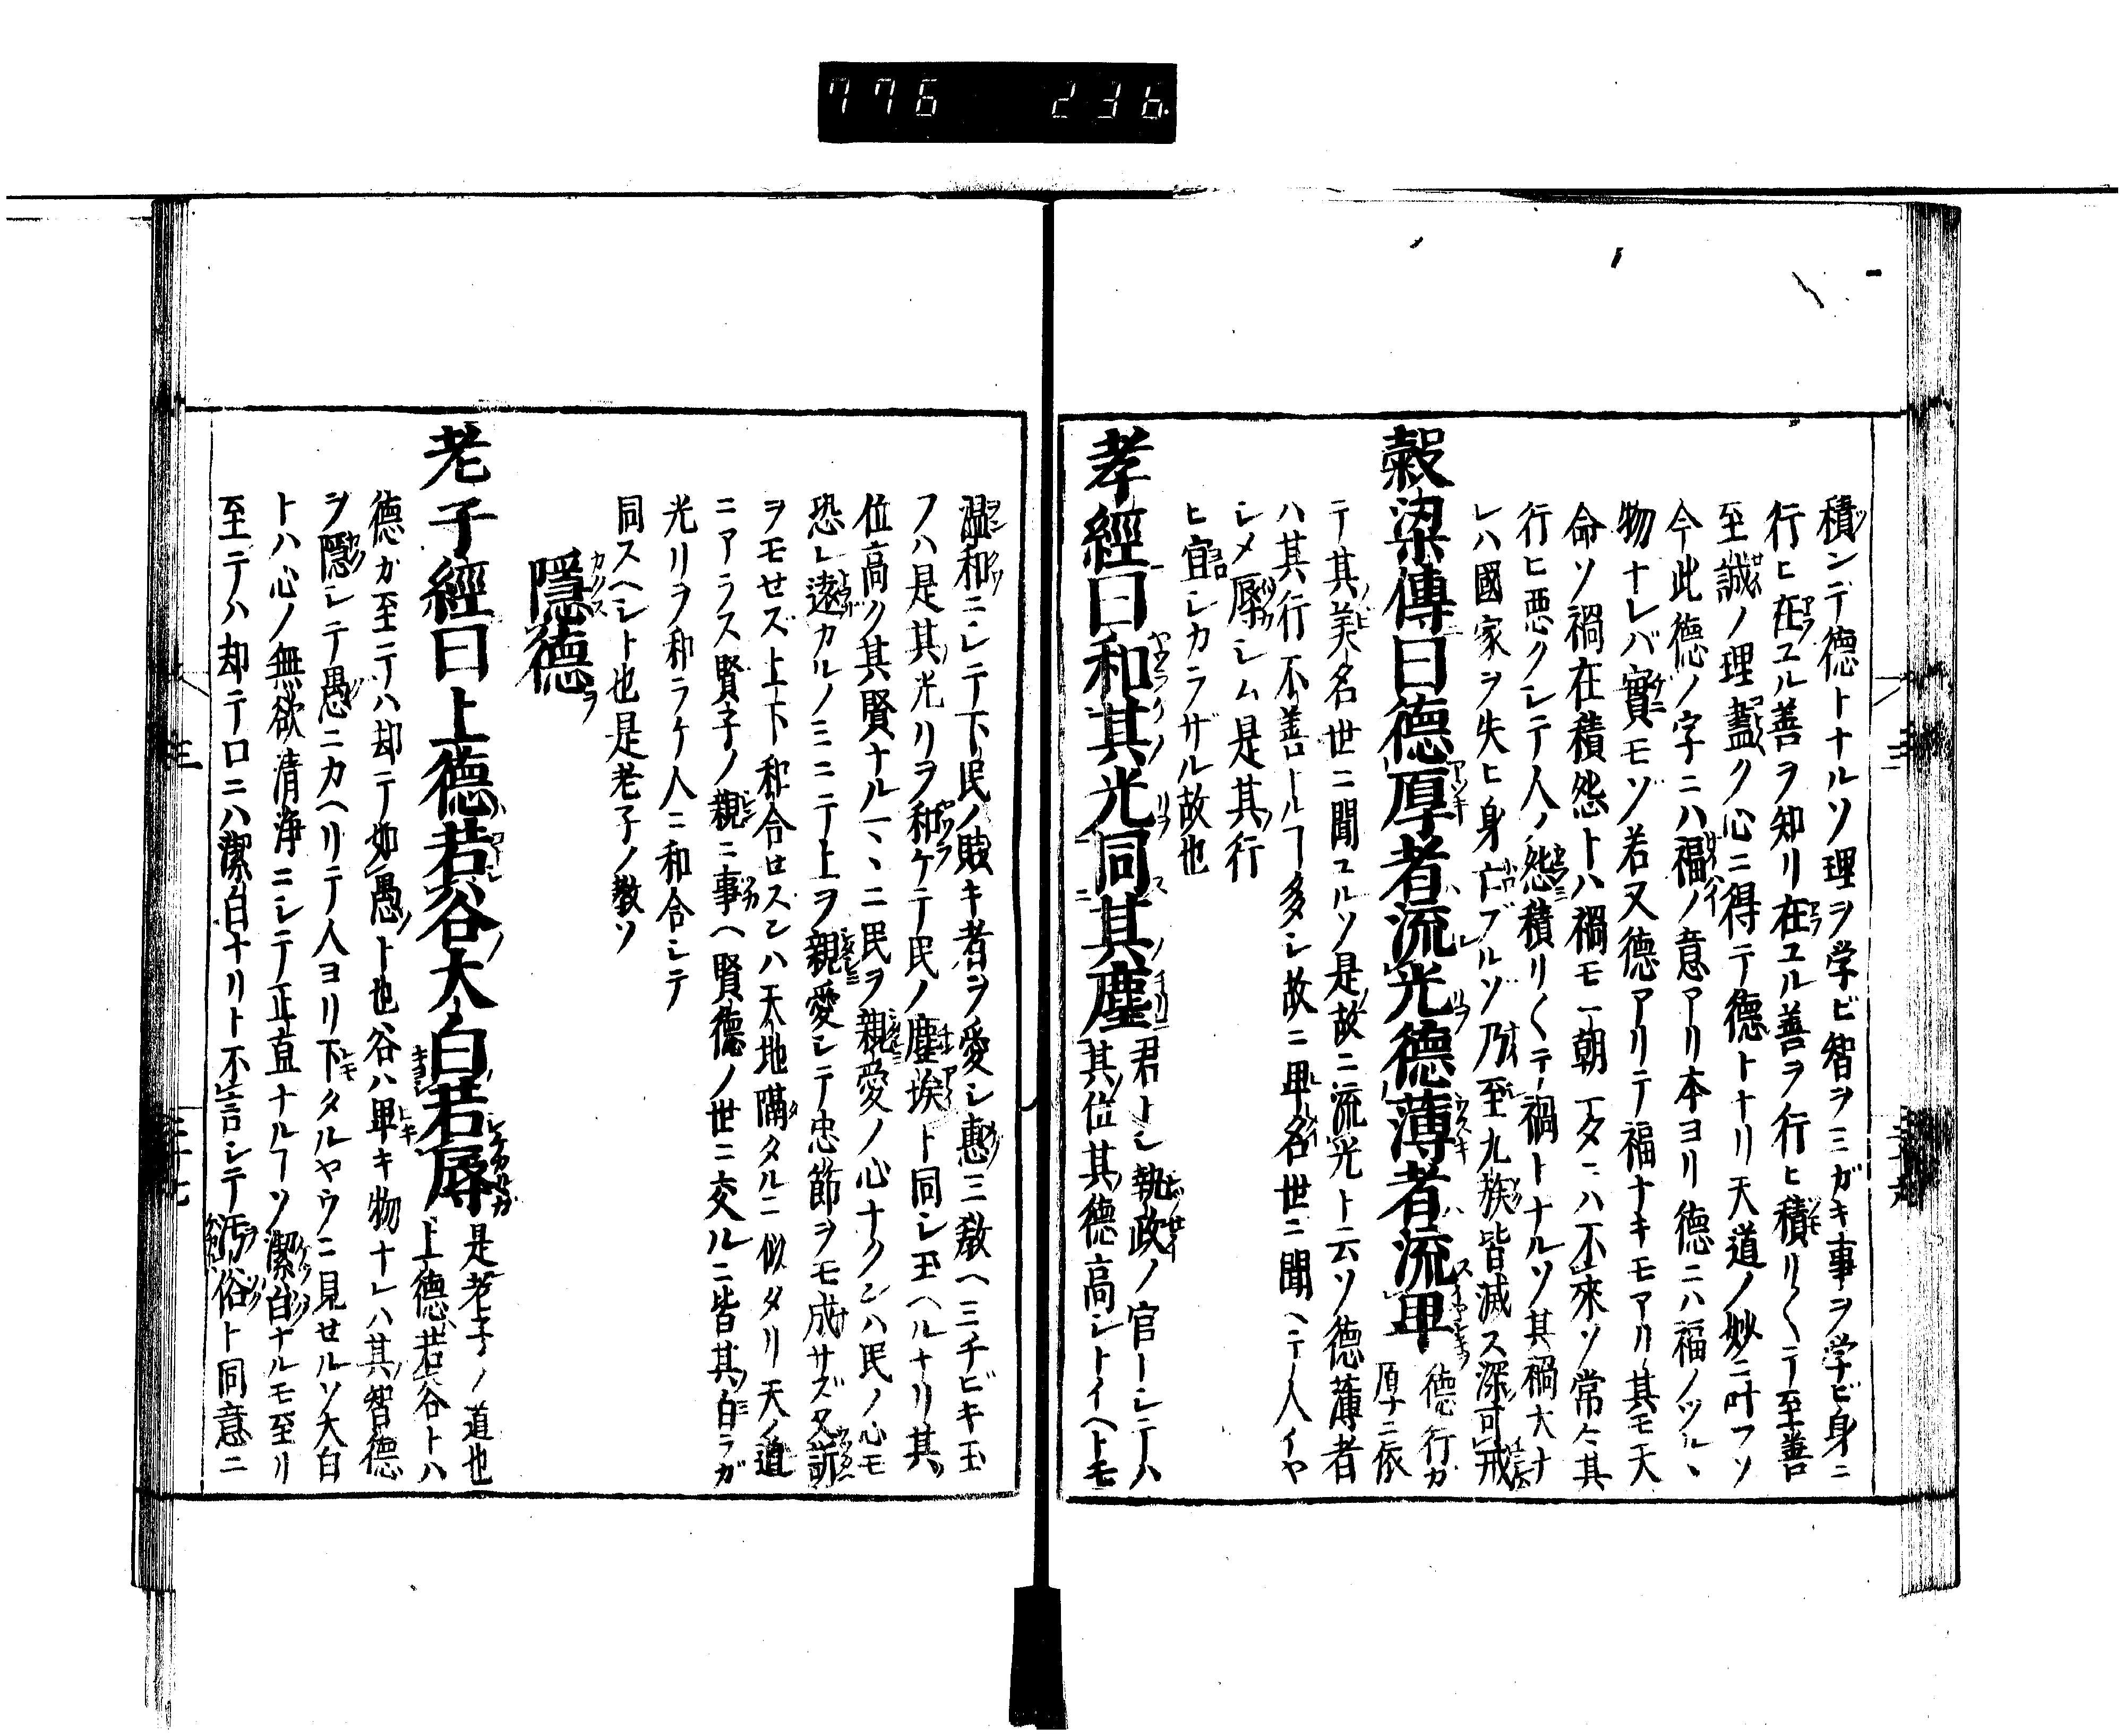 776 236
積ンデ德トナルソ理ヲ学ビ智ヲミガキ事ヲ学ビ身ニ
行ヒ在ユル善ヲ知リ在ユル善ヲ行ヒ積リ〱テ至善
至誠ノ理盡ク心ニ得テ德トナリ天道ノ妙ニ叶フソ
今此德ノ字ニハ福ノ意アリ本ヨリ德ニハ福ノツルヽ
物ナレバ實モゾ若又德アリテ福ナキモアリ其モ天
命ソ禍在積怨トハ禍モ一朝一夕ニハ不來ソ常々其
行ヒ悪クシテ人ノ怨積リ〱テ禍トナルソ其禍大ナ
レハ國家ヲ失ヒ身亡ブルソ乃至九族皆滅ス深可戒
穀梁傳曰德厚者流光德薄者流卑
德行ガ
厚ニ依
テ其美名世ニ聞ユルソ是故ニ流光ト云ソ德薄者
ハ其行不善ールヿ多シ故ニ卑名世ニ聞ヘテ人イヤ
シメ辱シム是其行
ヒ宜シカラザル故也
孝經曰和其光同其塵
君トシ執政ノ官ーシテハ
其位其德高シトイヘトモ
温和ニシテ下民ノ賤キ者ヲ愛シ惠ミ教ヘミチビキ玉
フハ是其光リヲ和ケテ民ノ塵埃ト同シ玉ヘルナリ其
位高ク其賢ナルマヽニ民ヲ親愛ノ心ナクンハ民ノ心モ
恐レ遠カルノミニテ上ヲ親愛シテ忠節ヲモ成サズ又訴
ヲモせズ上下和合セスンハ天地隔タルニ似タリ天ノ道
ニアラス賢子ノ親ニ事ヘ賢德ノ世ニ交ルニ皆其自ラガ
光リヲ和ラケ人ニ和合シテ
同スヘシト也是老子ノ教ソ
隱德
老子經曰上德若谷大白若辱
是老子ノ道也
上德若谷トハ
德カ至テハ却テ如愚ト也谷ハ卑キ物ナレハ其智德
ヲ隱シテ愚ニカヘリテ人ヨリ下タルヤウニ見せルソ大白
トハ心ノ無欲清海ニシテ正直ナルヿソ潔白ナルモ至リ
至テハ却テ口ニハ潔白ナリト不言シテ汚俗ト同意ニ